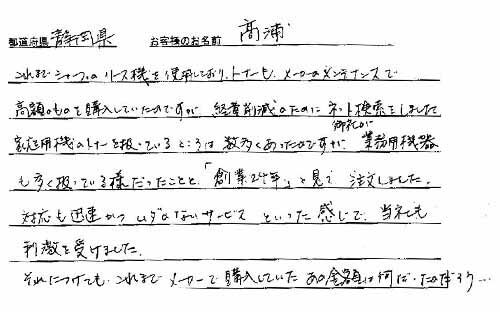 都道府県 静岡県 お客様のお名前 高浦
これまでシャープのリース機を使用しており、トナーも、メーカーのメンテナンスで
高額のものを購入していたのですが 経費削減のために ネット検索をしました
御社が
家庭用機のトナーを扱っているところは 数多くあったのですが、業務用機器
も多く扱っている様だったことと、「創業24年」と見て 注文しました。
対応も迅速かつ ムダのないサービス といった感じで、当社も
刺激を受けました。
それにつけても、これまで メーカーで購入していた あの金額は何だったのだろう…